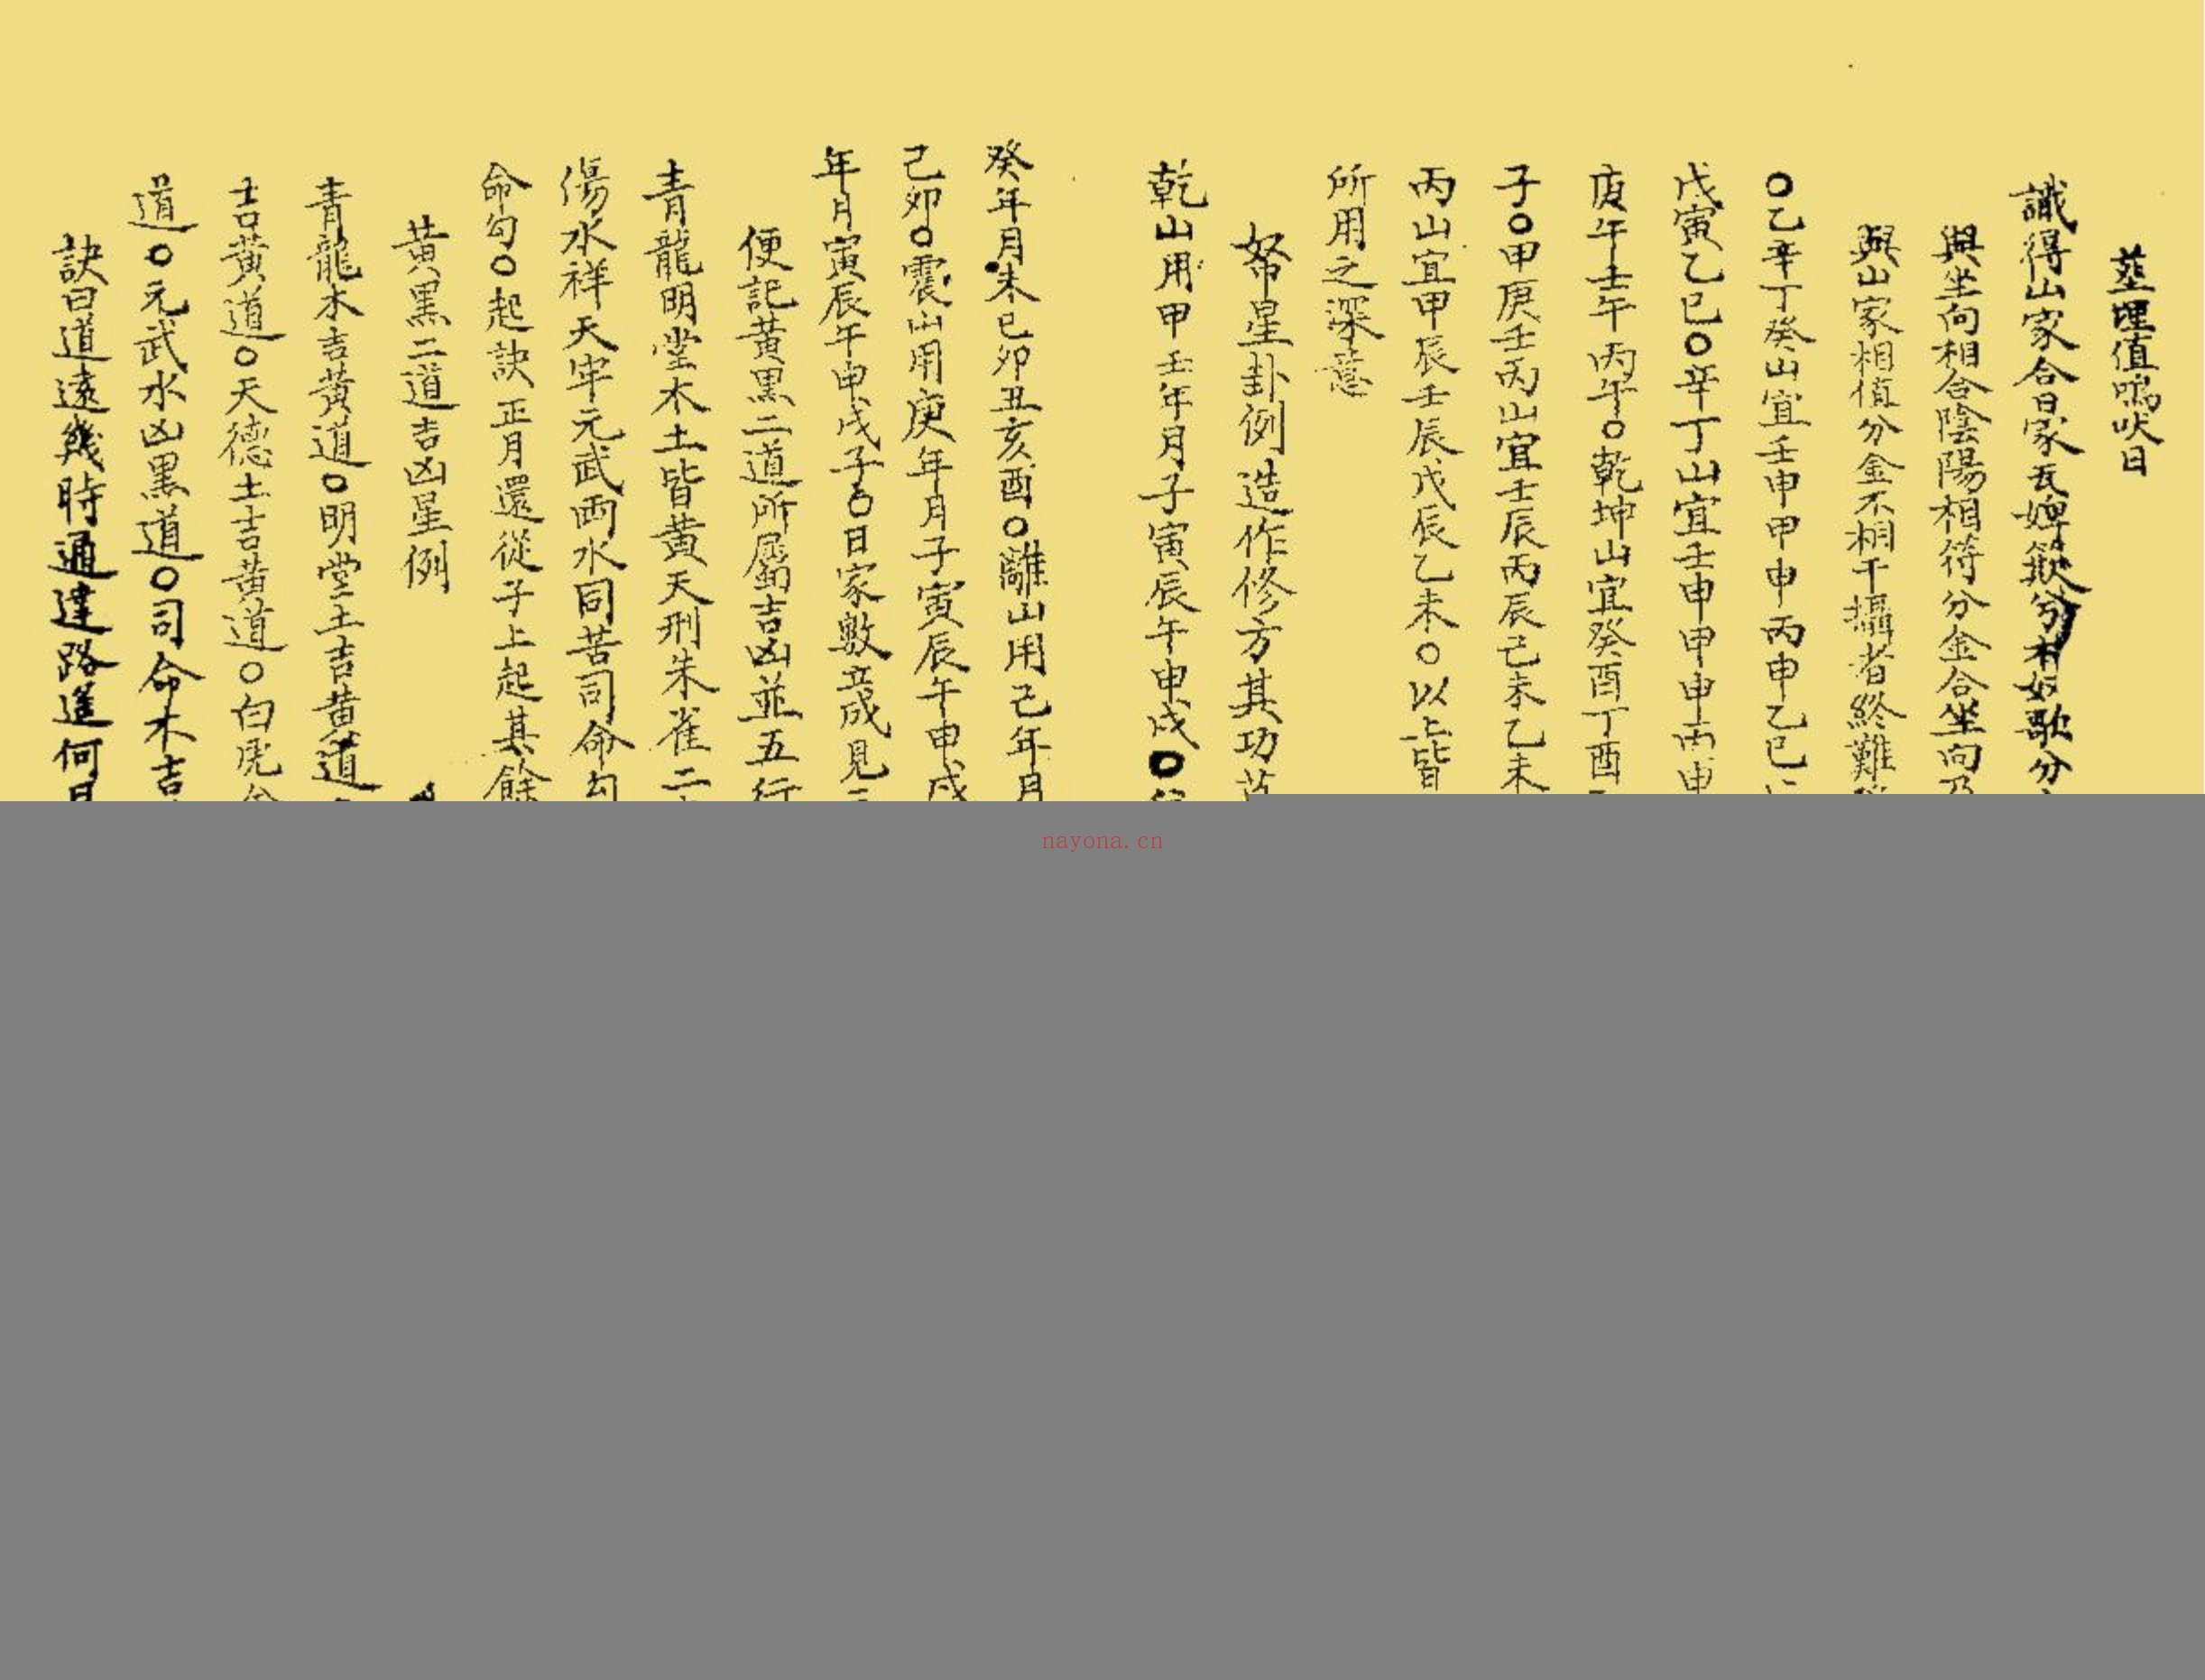 塟埋值鳴吠日
識得山家合日家 歌分
與坐向相合陰陽相符分金合坐向乃
與山家相值分金不相干攝者終難
○乙辛丁癸山宜壬申甲申丙申乙巳
戊寅乙巳○辛丁山宜壬申甲申丙申
庚午壬午丙午○乾坤山宜癸酉丁酉
子○甲庚壬丙山宜壬辰丙辰己未乙未
丙山宜甲辰壬辰戊辰乙未○以上皆
所用之深意
星卦例造作修方其功
乾山用甲壬年月子寅辰午申戌○
癸年月未巳卯丑亥酉○離山用己年月
己卯○震山用庚年月子寅辰午申戌
年月寅辰午申戌子○日家數立成見
便記黃黑二道所屬吉凶並五行
青龍明堂木土皆黃天刑朱雀二
傷水祥天牢元武両水同苦司命勾
命勾○起訣正月還從子上起其餘
黃黑二道吉凶星例
青龍木吉黃道○明堂土吉黃道
吉黃道○天德土吉黃道○白虎金
道○元武水凶黑道○司命木吉
訣曰道遠幾時通達路遙何日
nayona.cn